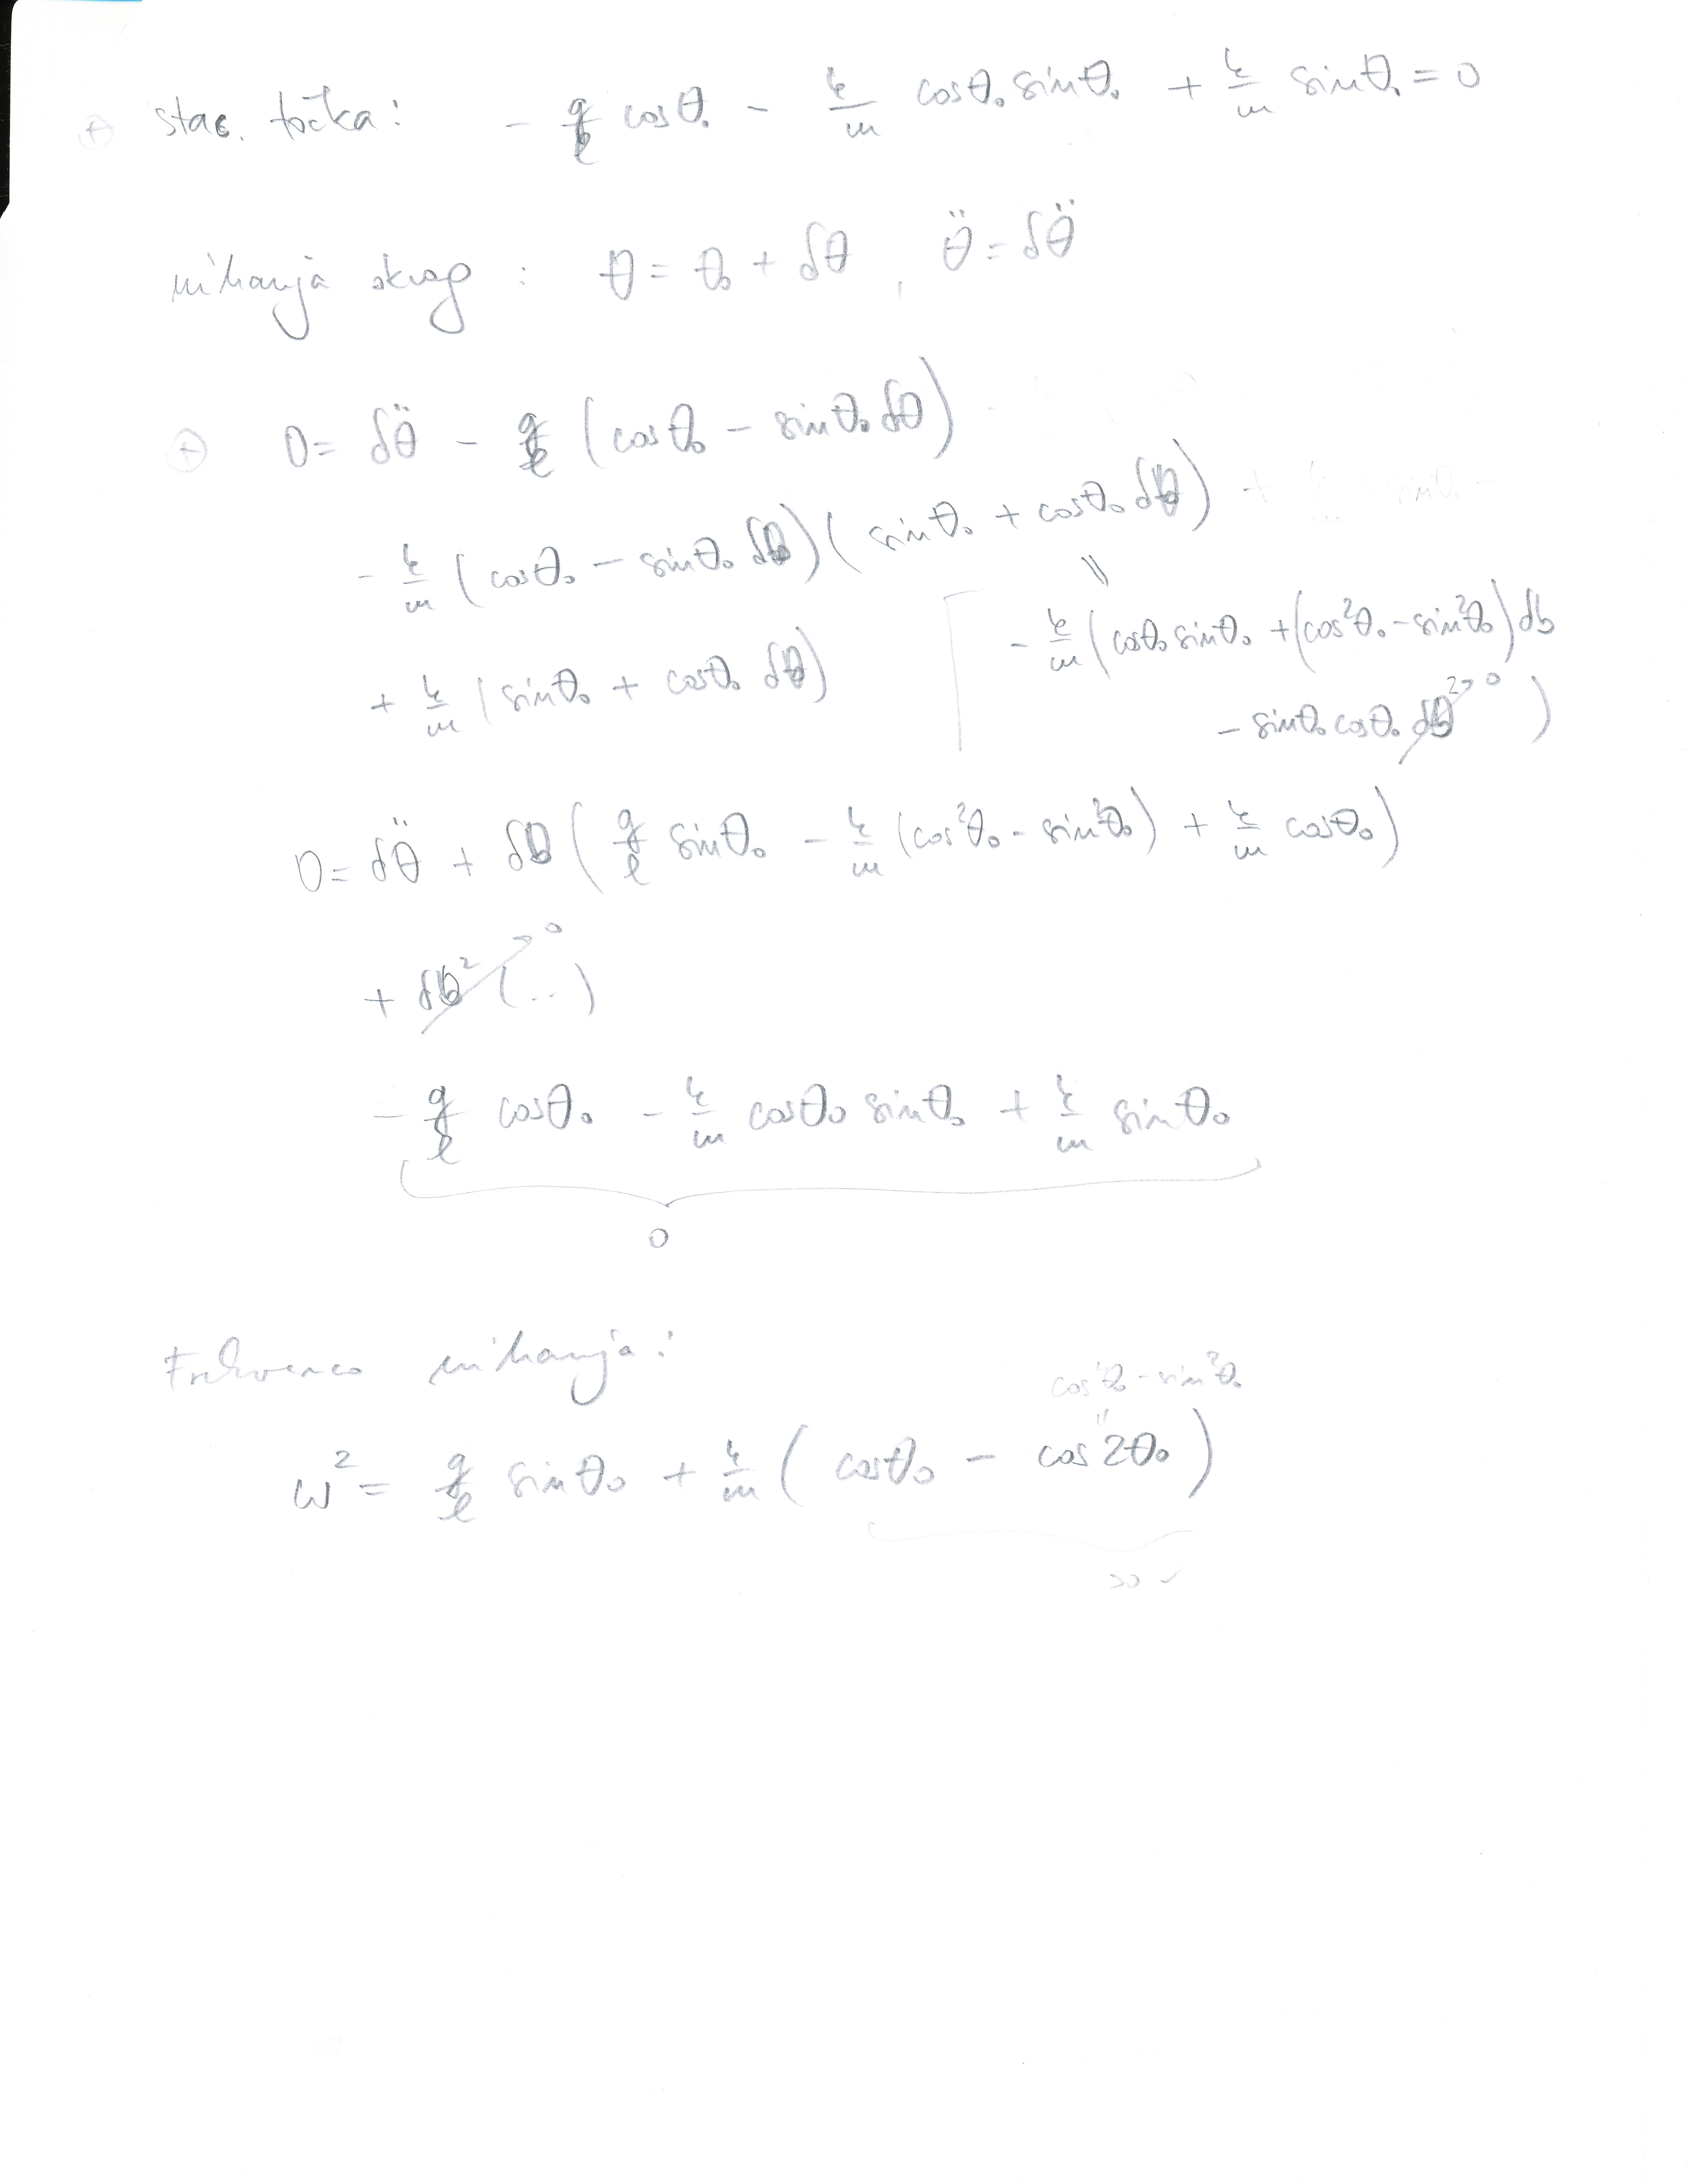 ⊕ stac. točka: - g/l cosθ₀ - k/m cosθ₀ sinθ₀ + k/m sinθ₀ = 0
nihanja okrog : θ = θ₀ + δθ , θ̈ = δθ̈
⊕ 0 = δθ̈ - g/l (cosθ₀ - sinθ₀ δθ)
- k/m (cosθ₀ - sinθ₀ δθ)(sinθ₀ + cosθ₀ δθ)
+ k/m (sinθ₀ + cosθ₀ δθ)
= - k/m (cosθ₀ sinθ₀ + (cos²θ₀ - sin²θ₀) δθ
- sinθ₀ cosθ₀ δθ² → 0 )
0 = δθ̈ + δθ ( g/l sinθ₀ - k/m (cos²θ₀ - sin²θ₀) + k/m cosθ₀ )
+ δθ² (..) → 0
- g/l cosθ₀ - k/m cosθ₀ sinθ₀ + k/m sinθ₀
0
Frekvenca nihanja:
cos²θ₀ - sin²θ₀
ω² = g/l sinθ₀ + k/m ( cosθ₀ - cos 2θ₀ )
>0 ✓